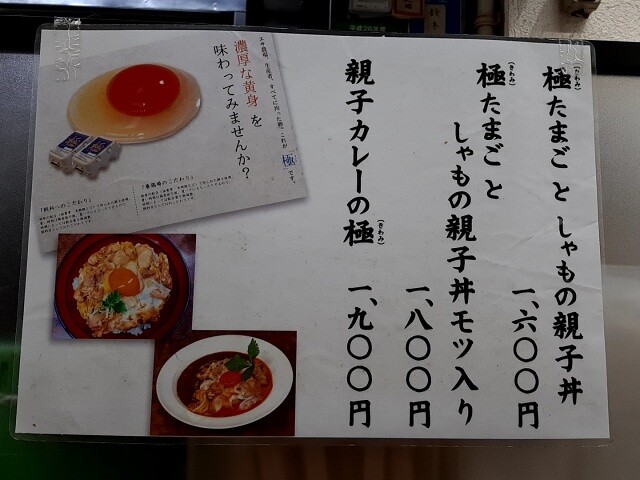 極たまごとしゃもの親子丼
(きわみ)
一、六〇〇円
極たまごと
(きわみ)
しゃもの親子丼モツ入り
一、八〇〇円
親子カレーの極
(きわみ)
一、九〇〇円
「極」です。
濃厚な黄身を
味わってみませんか?
「飼料へのこだわり」
「養鶏場のこだわり」